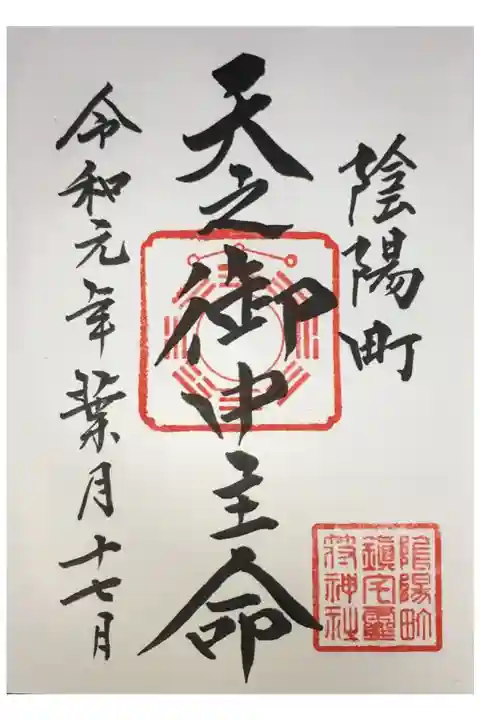 陰陽町
天之御中主命
令和元年葉月十七日
陰陽町
鎭宅靈
符神社